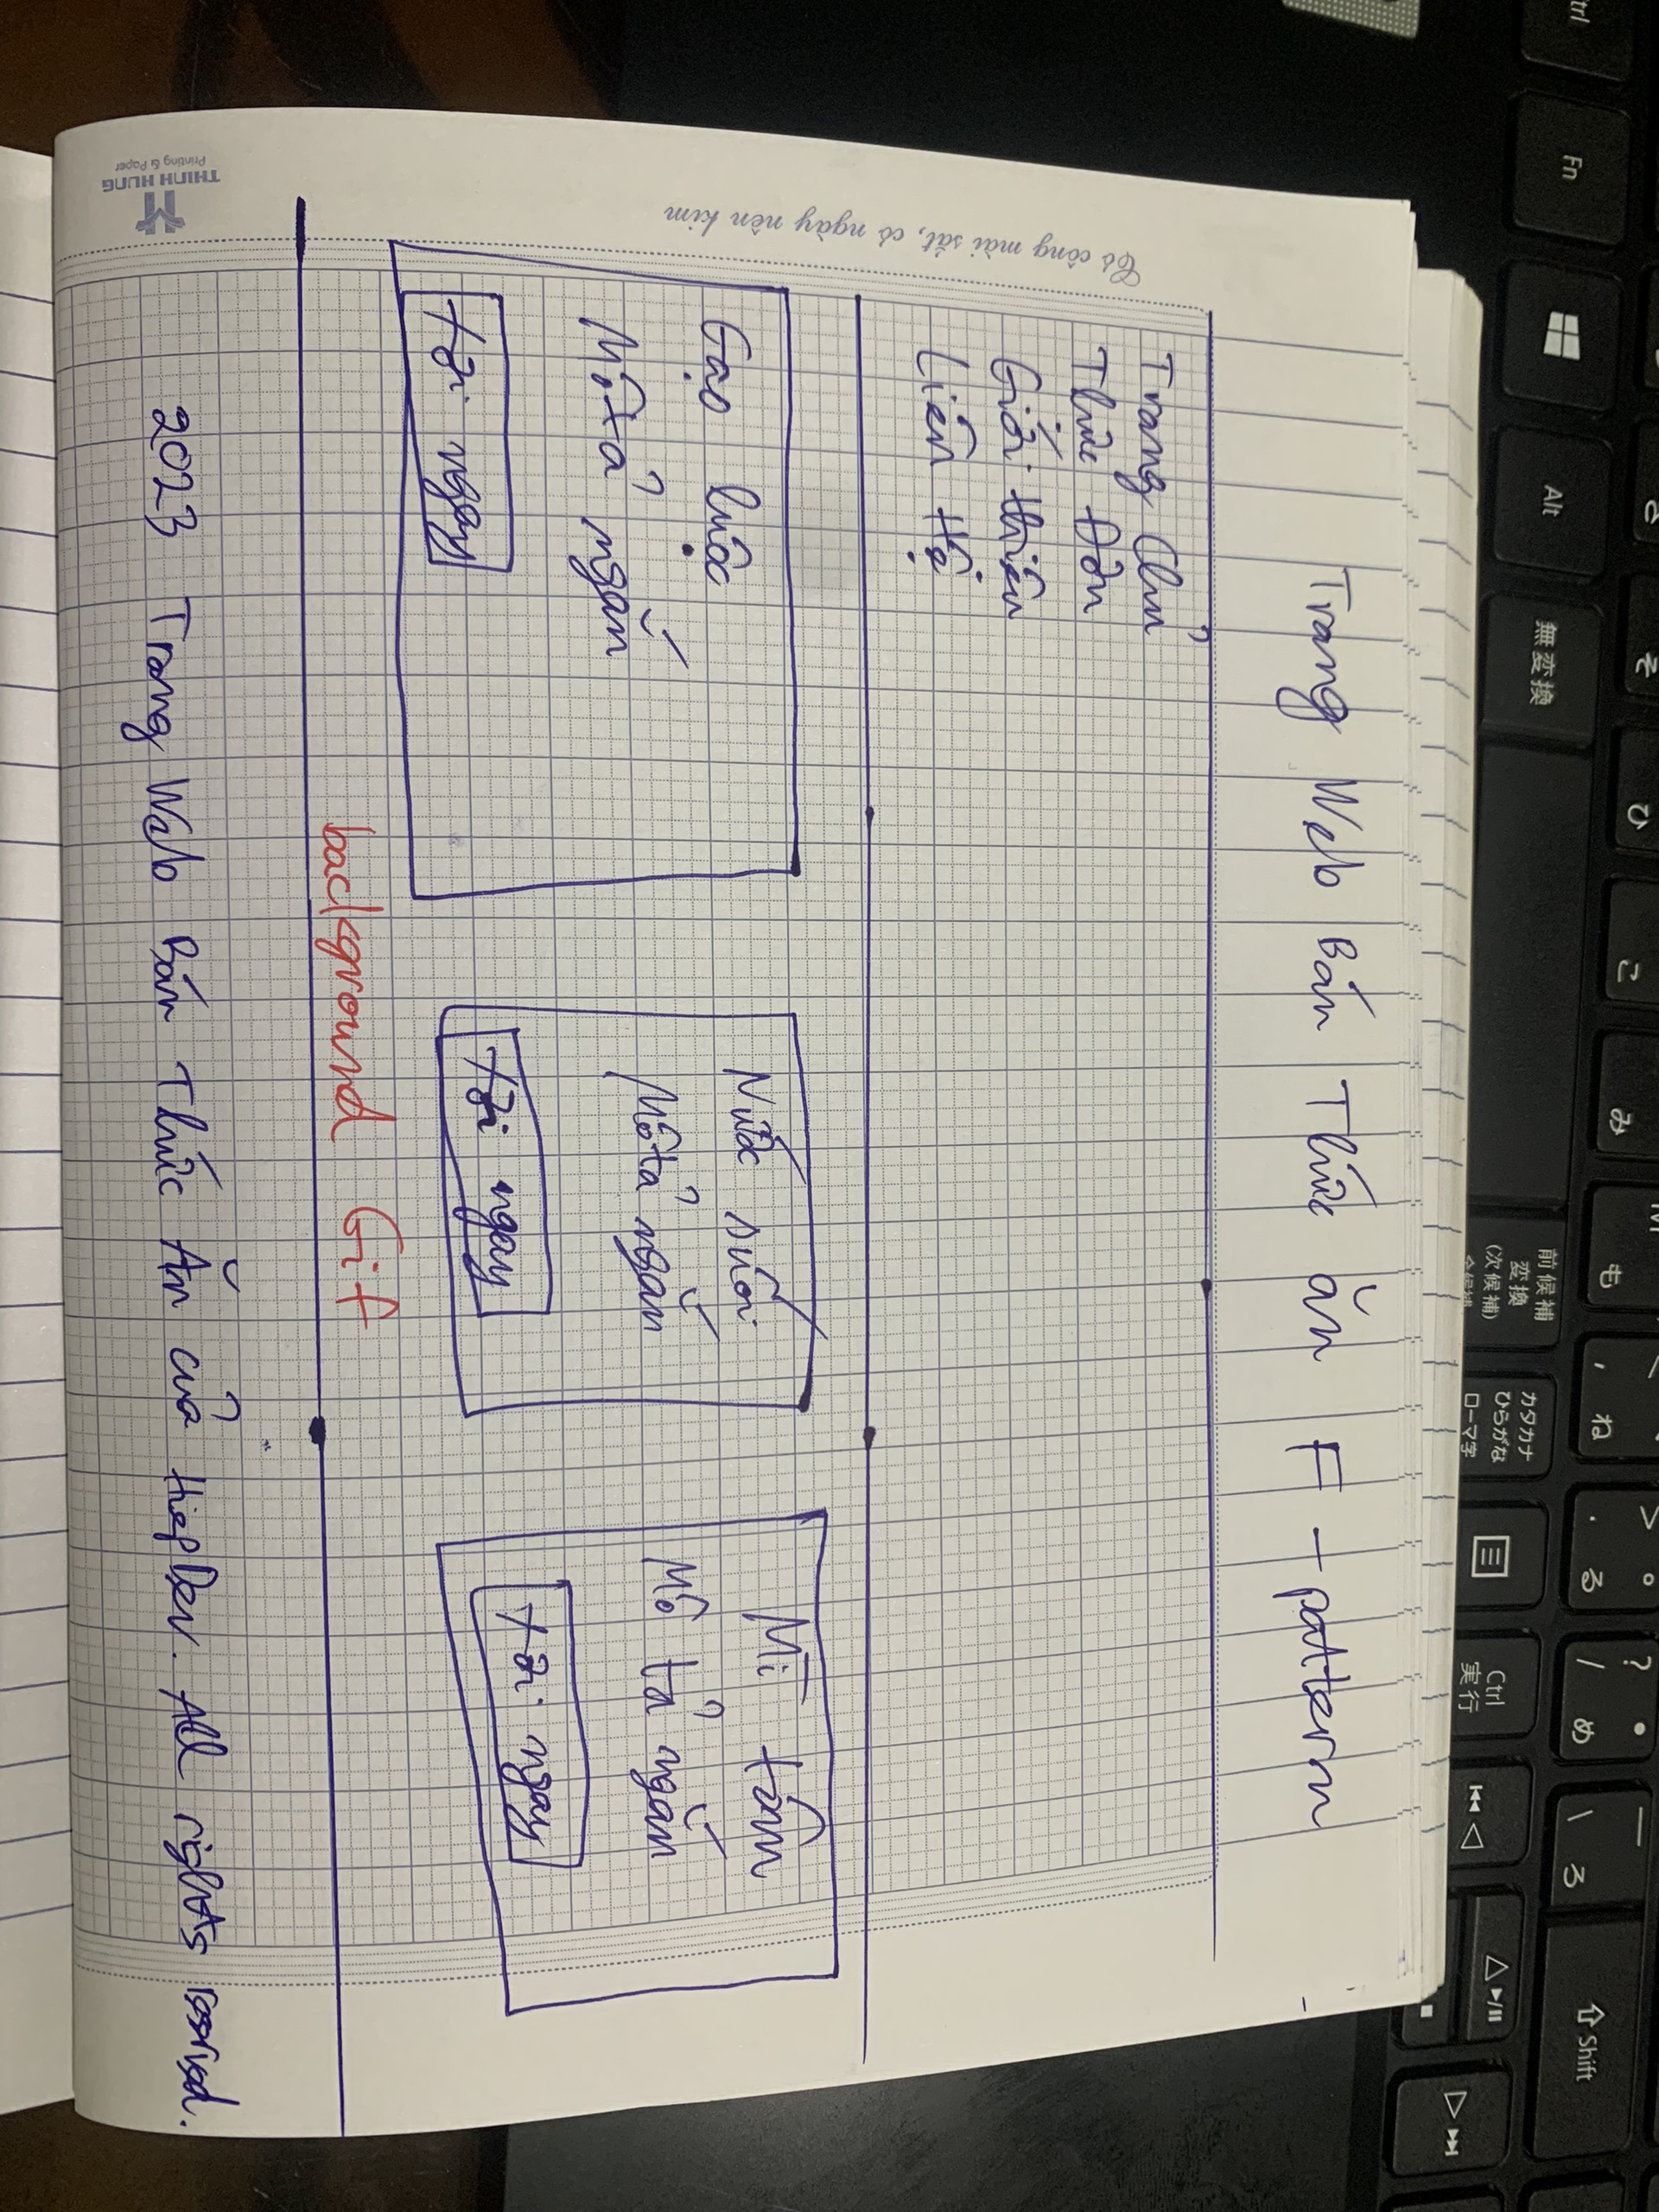 Trang Web Bán Thức ăn F-pattern
Trang Chủ
Thức Đơn
Giới thiệu
Liên Hệ
Gạo lược
Mô tả ngắn
tới ngay
Nước suối
Mô tả ngắn
tới ngay
Mì tôm
Mô tả ngắn
tới ngay
background Gif
2023 Trang Web Bán Thức Ăn của HiepDev. All rights
Có công mài sắt, có ngày nên kim
THINH HUNG
Printing & Paper
Ctrl
Fn
Alt
無変換
前候補
変換
(次候補)
カタカナ
ひらがな
ローマ字
Ctrl
実行
Shift
そ
ひ
こ
み
も
, ね
. る
? ・
/ め
\ ろ